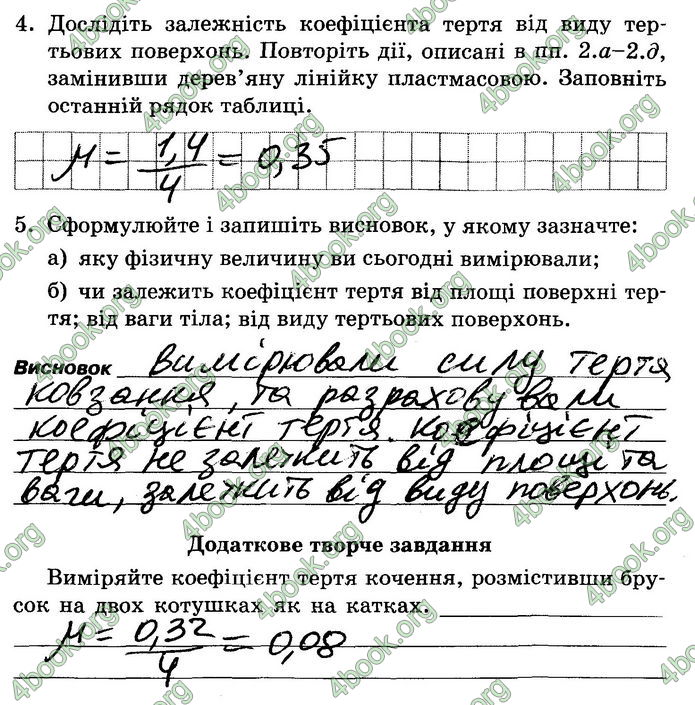 4. Дослідіть залежність коефіцієнта тертя від виду тер-
тьових поверхонь. Повторіть дії, описані в пп. 2.а–2.д,
замінивши дерев’яну лінійку пластмасовою. Заповніть
останній рядок таблиці.
μ = 1,4/4 = 0,35
5. Сформулюйте і запишіть висновок, у якому зазначте:
а) яку фізичну величину ви сьогодні вимірювали;
б) чи залежить коефіцієнт тертя від площі поверхні тер-
тя; від ваги тіла; від виду тертьових поверхонь.
Висновок Вимірювали силу тертя
ковзання, та розрахову вали
коефіцієнт тертя. Коефіцієнт
тертя не залежить від площі та
ваги, залежить від виду поверхонь.
Додаткове творче завдання
Виміряйте коефіцієнт тертя кочення, розмістивши бру-
сок на двох котушках як на катках.
μ = 0,32/4 = 0,08
4book.org